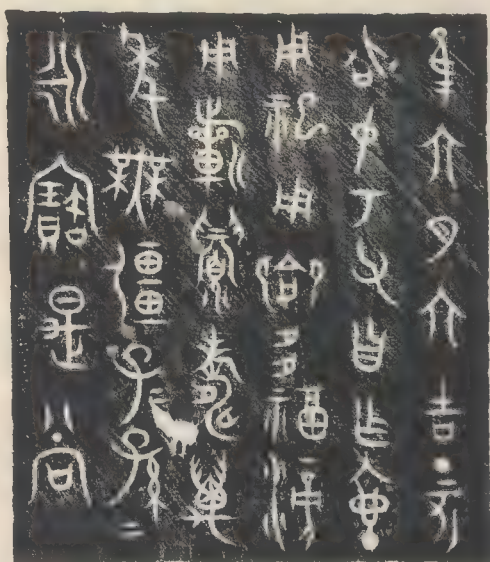 隹六月初吉丁亥
召中丂父自乍壺
用祀用鄉多福滂
用𣄨眉壽萬
年無彊子=孫=
永寶是尚